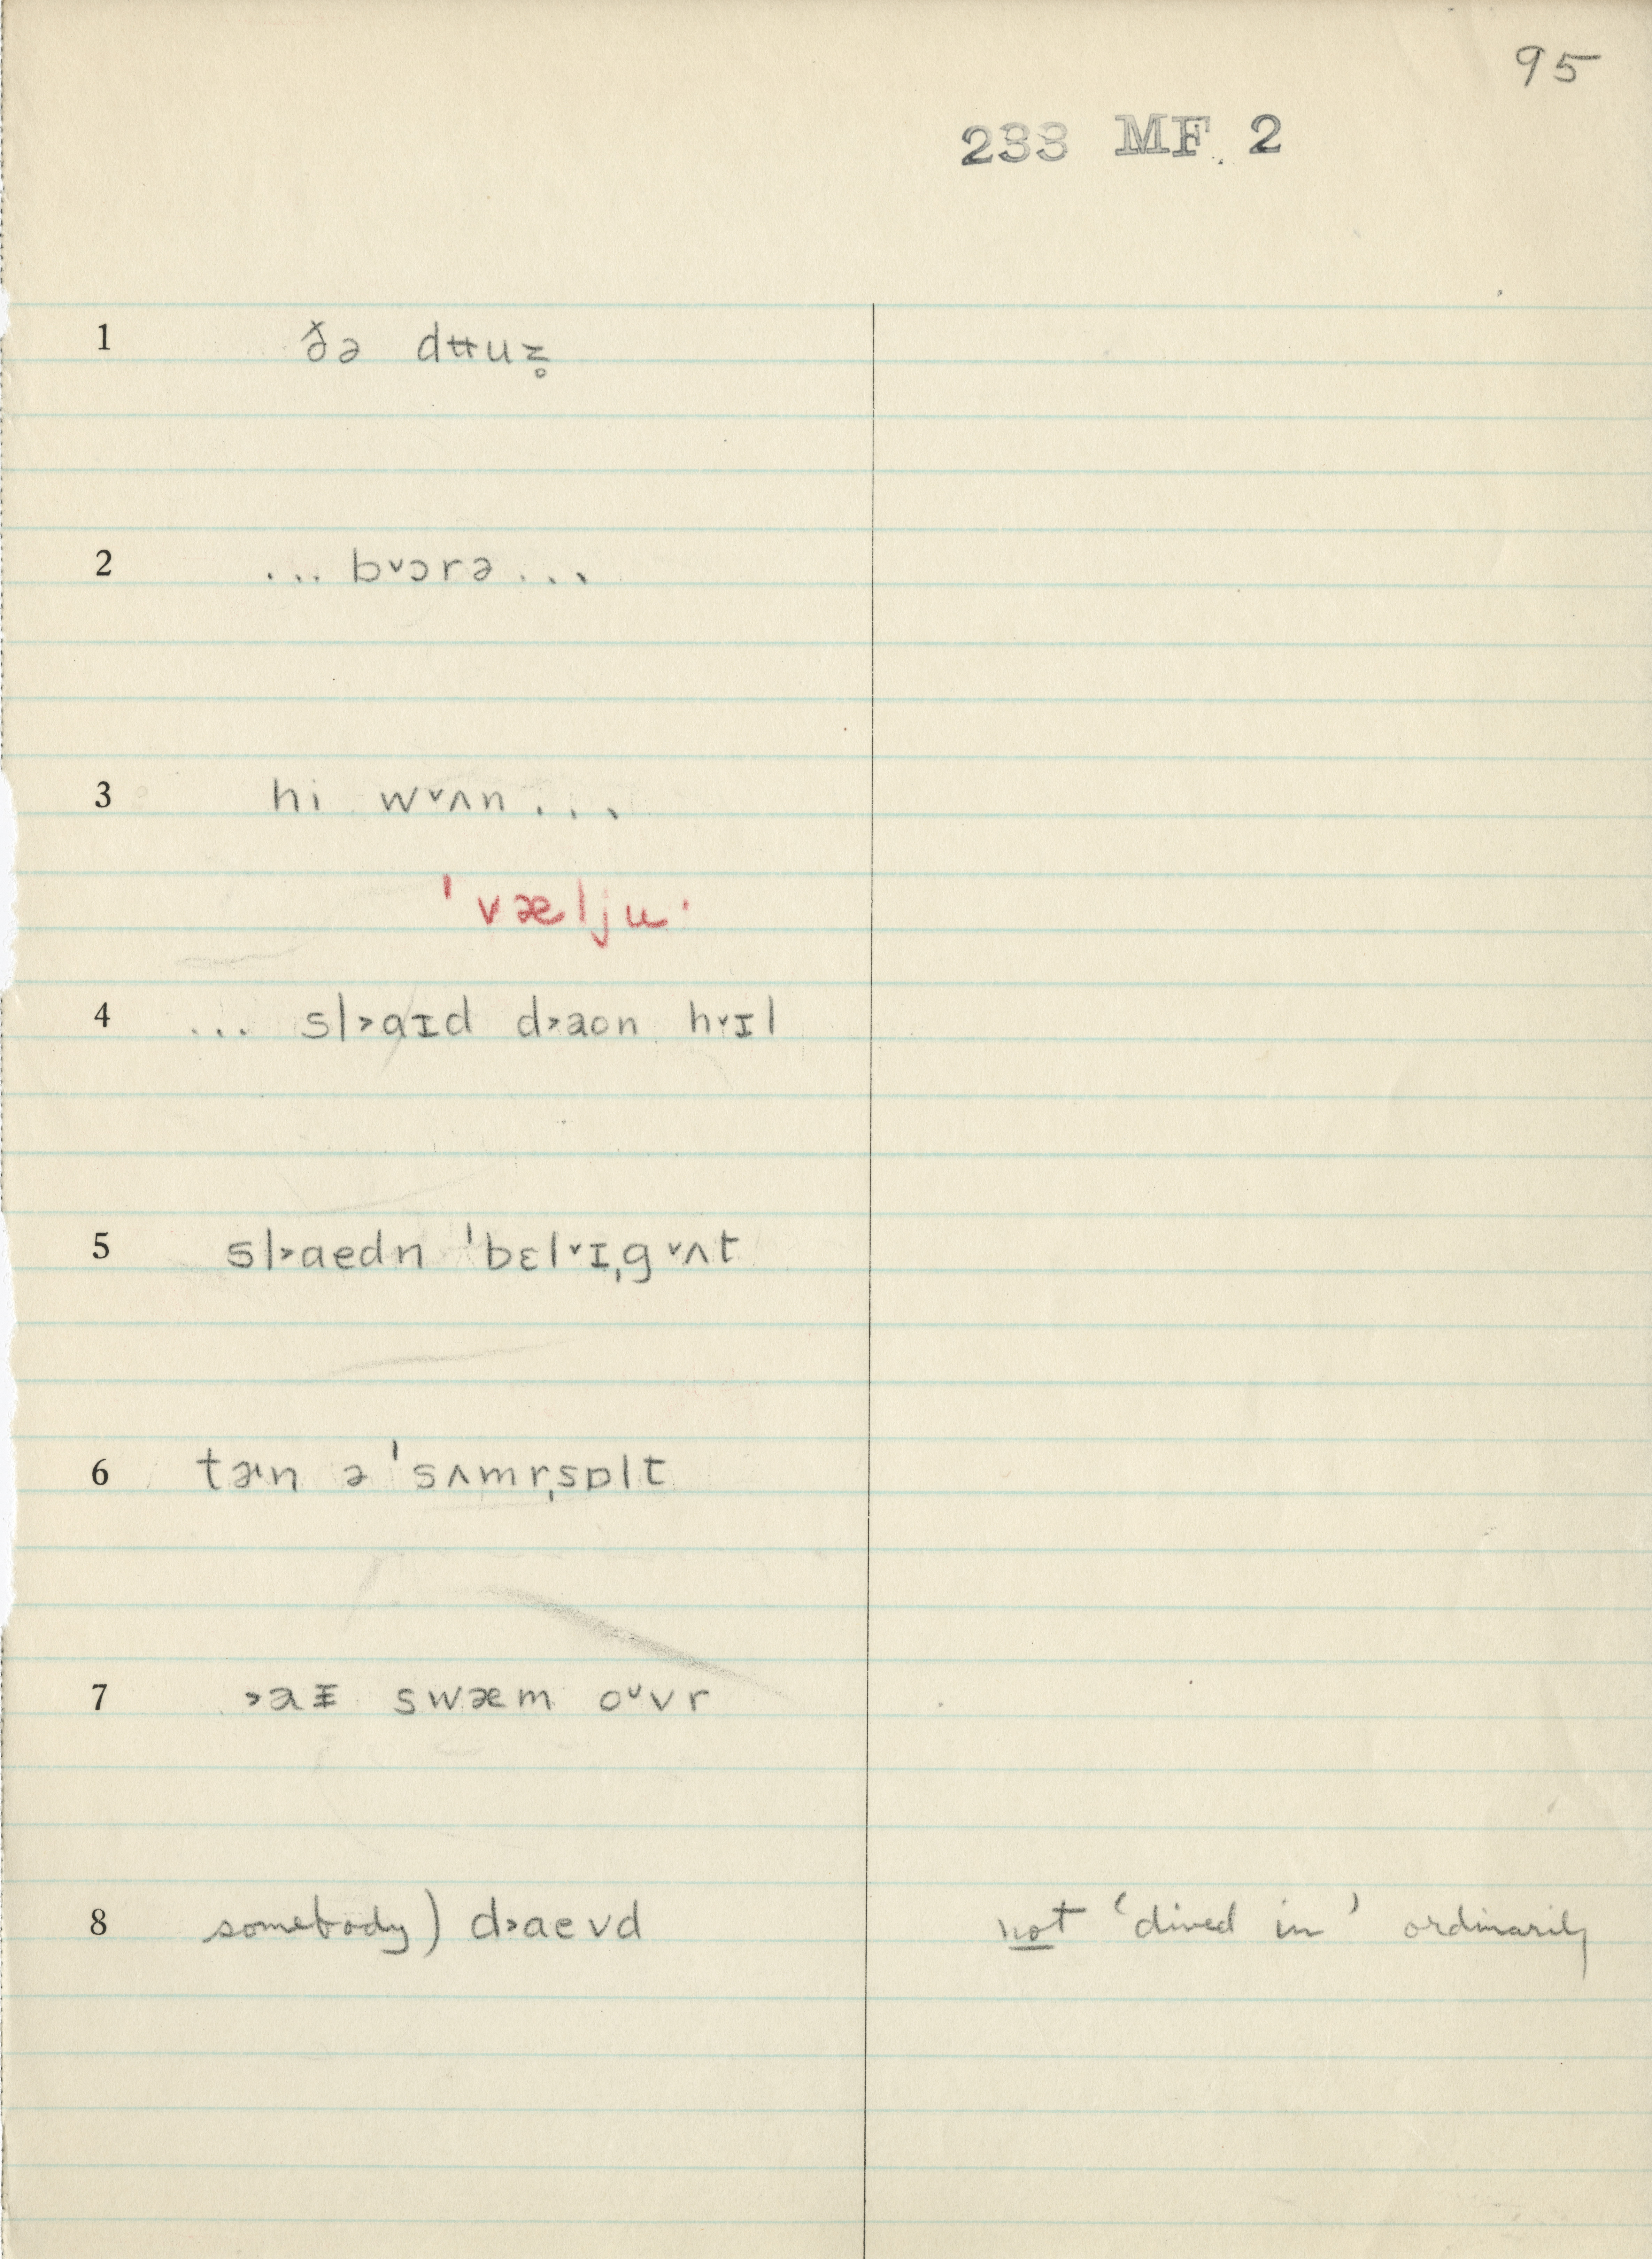 95
233 MF 2
1 ðə dʉuz̥
2 ... b˅ɔrə ...
3 hi w˅ʌn ...
ˈvæljuˑ
4 ... sl˃aɪd d˃aon h˅ɪl
5 sl˃aedn ˈbɛl˅ɪˌg˅ʌt
6 tɚn ə ˈsʌmrˌsɒlt
7 ˃aᵻ swæm oᵘvr
8 somebody) d˃aevd not ‘dived in’ ordinarily